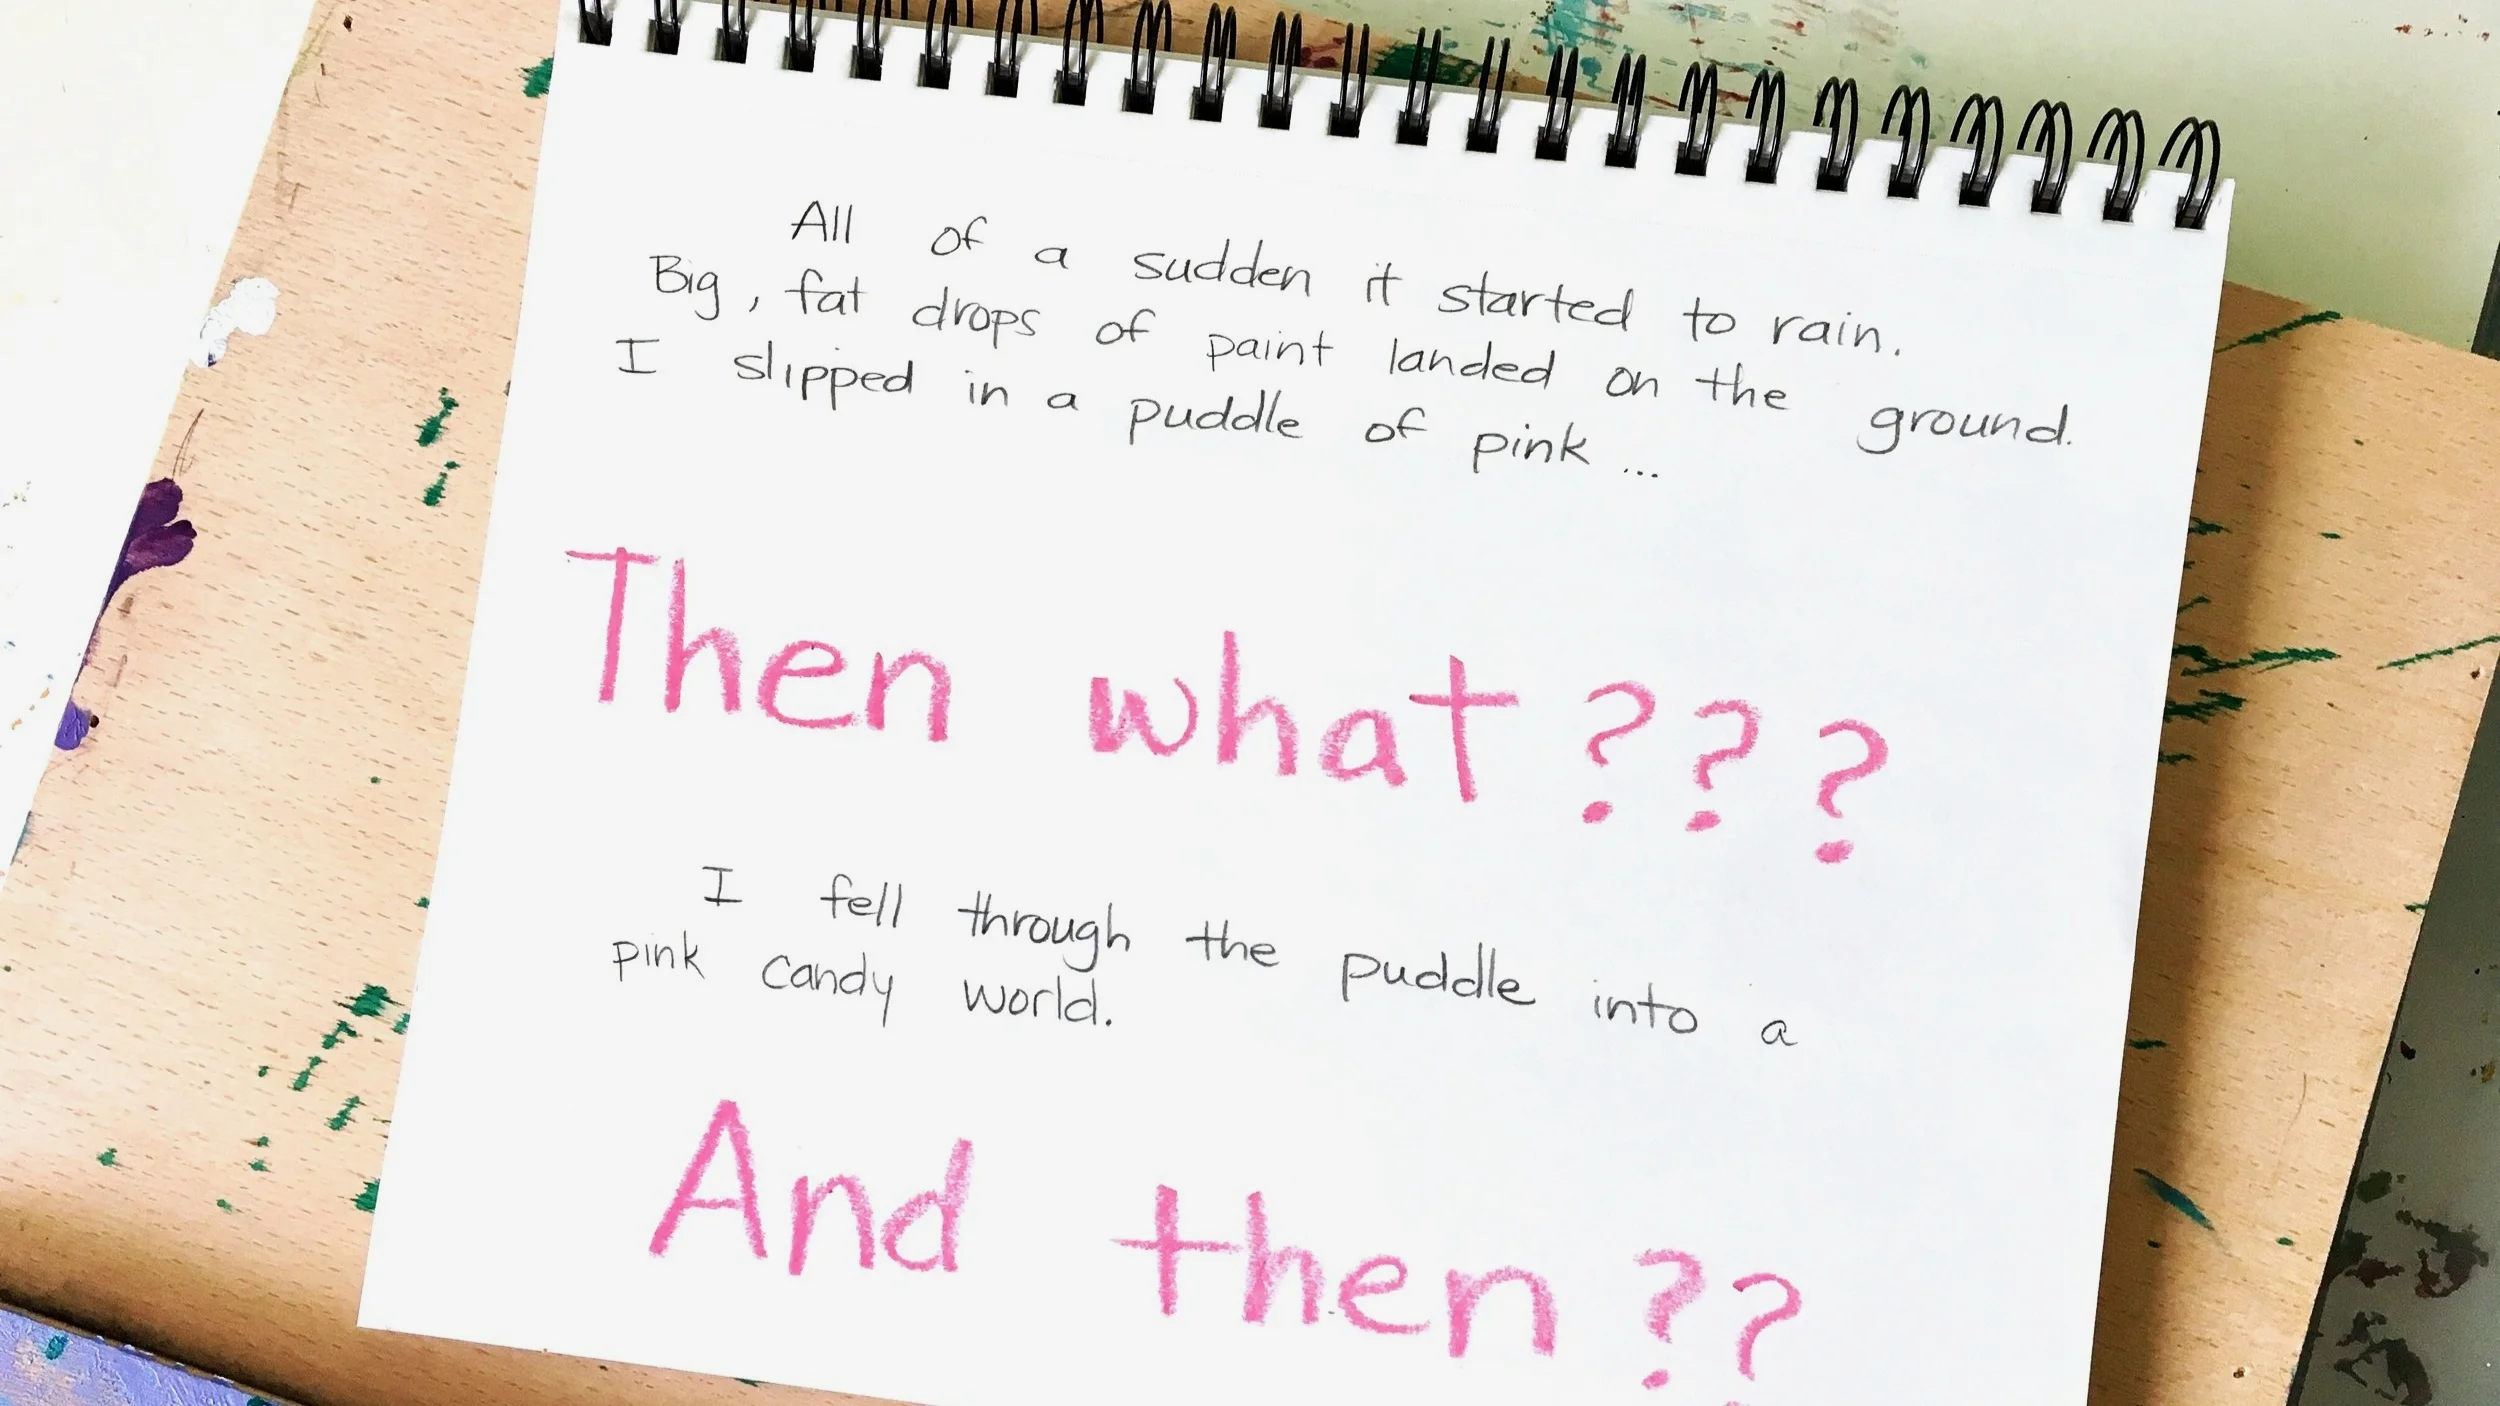 All of a sudden it started to rain.
Big, fat drops of paint landed on the ground.
I slipped in a puddle of pink...
Then what???
I fell through the puddle into a
pink candy world.
And then??